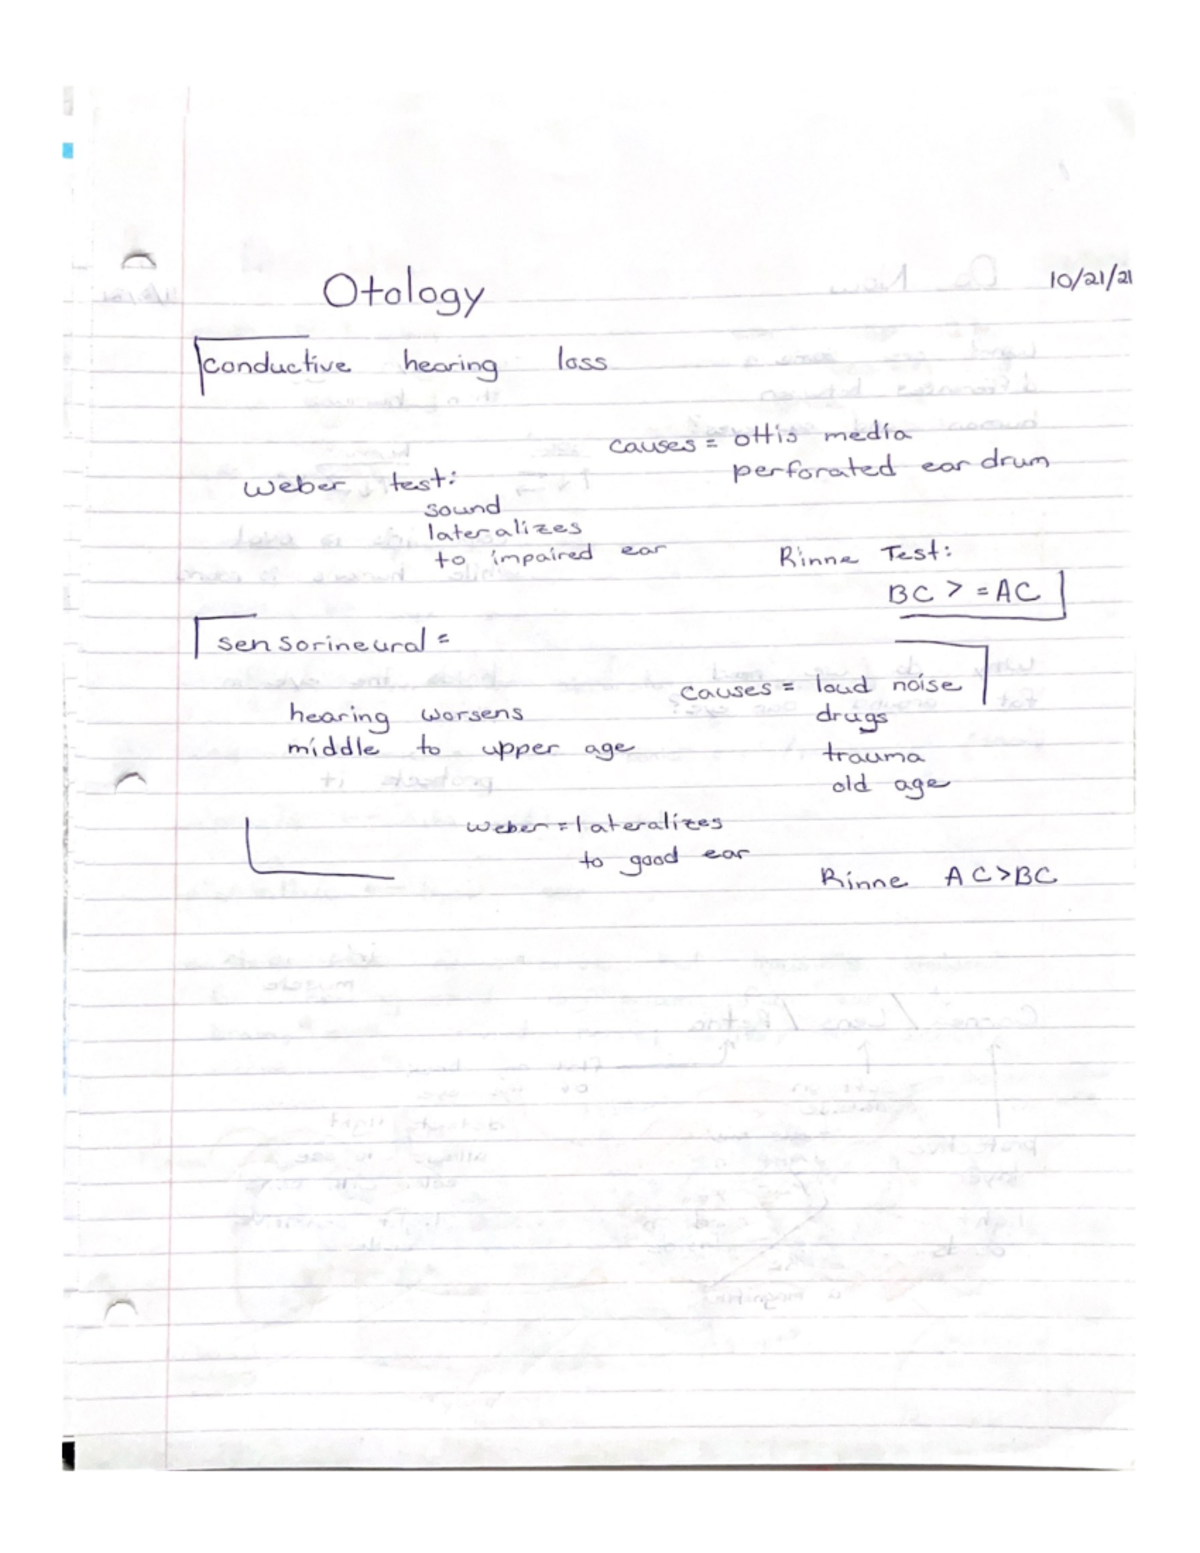 Otology
10/21/21
conductive hearing loss
causes = ottis media
perforated ear drum
Weber test:
sound
lateralizes
to impaired ear
Rinne Test:
BC > = AC
sensorineural =
causes = loud noise
drugs
trauma
old age
hearing worsens
middle to upper age
Weber = lateralizes
to good ear
Rinne AC>BC